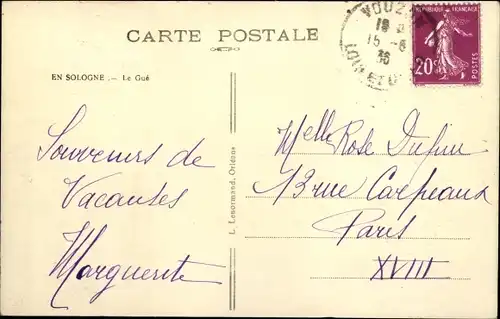 CARTE POSTALE
EN SOLOGNE. — Le Gué
Souvenirs de
Vacances
Marguerite
L. Lenormand, Orléans
18
15 -6
36
REPUBLIQUE FRANÇAISE
20c
POSTES
Melle Rose
13 rue Carpeaux
Paris
XVIII